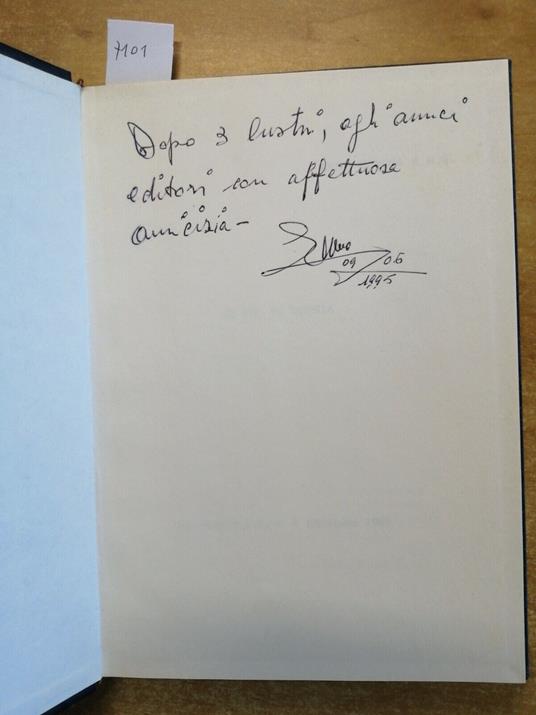 7101
Dopo 3 lustri, agli amici
editori con affettuosa
amicizia -
09/06
1995